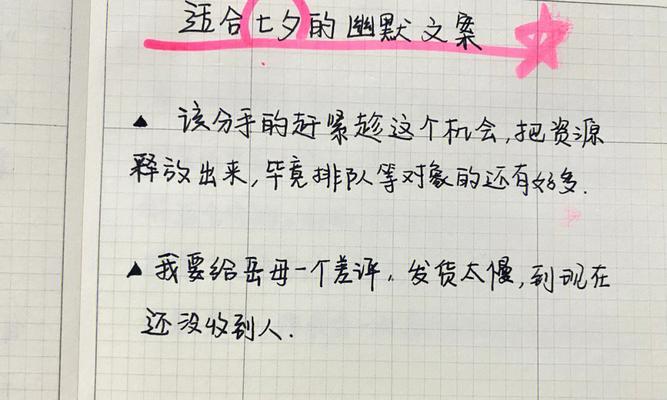 适合七夕的幽默文案
▲ 该分手的赶紧趁这个机会,把资源
释放出来,毕竟排队等对象的还有好多.
▲ 我要给岳母一个差评,发货太慢,到现在
还没收到人.